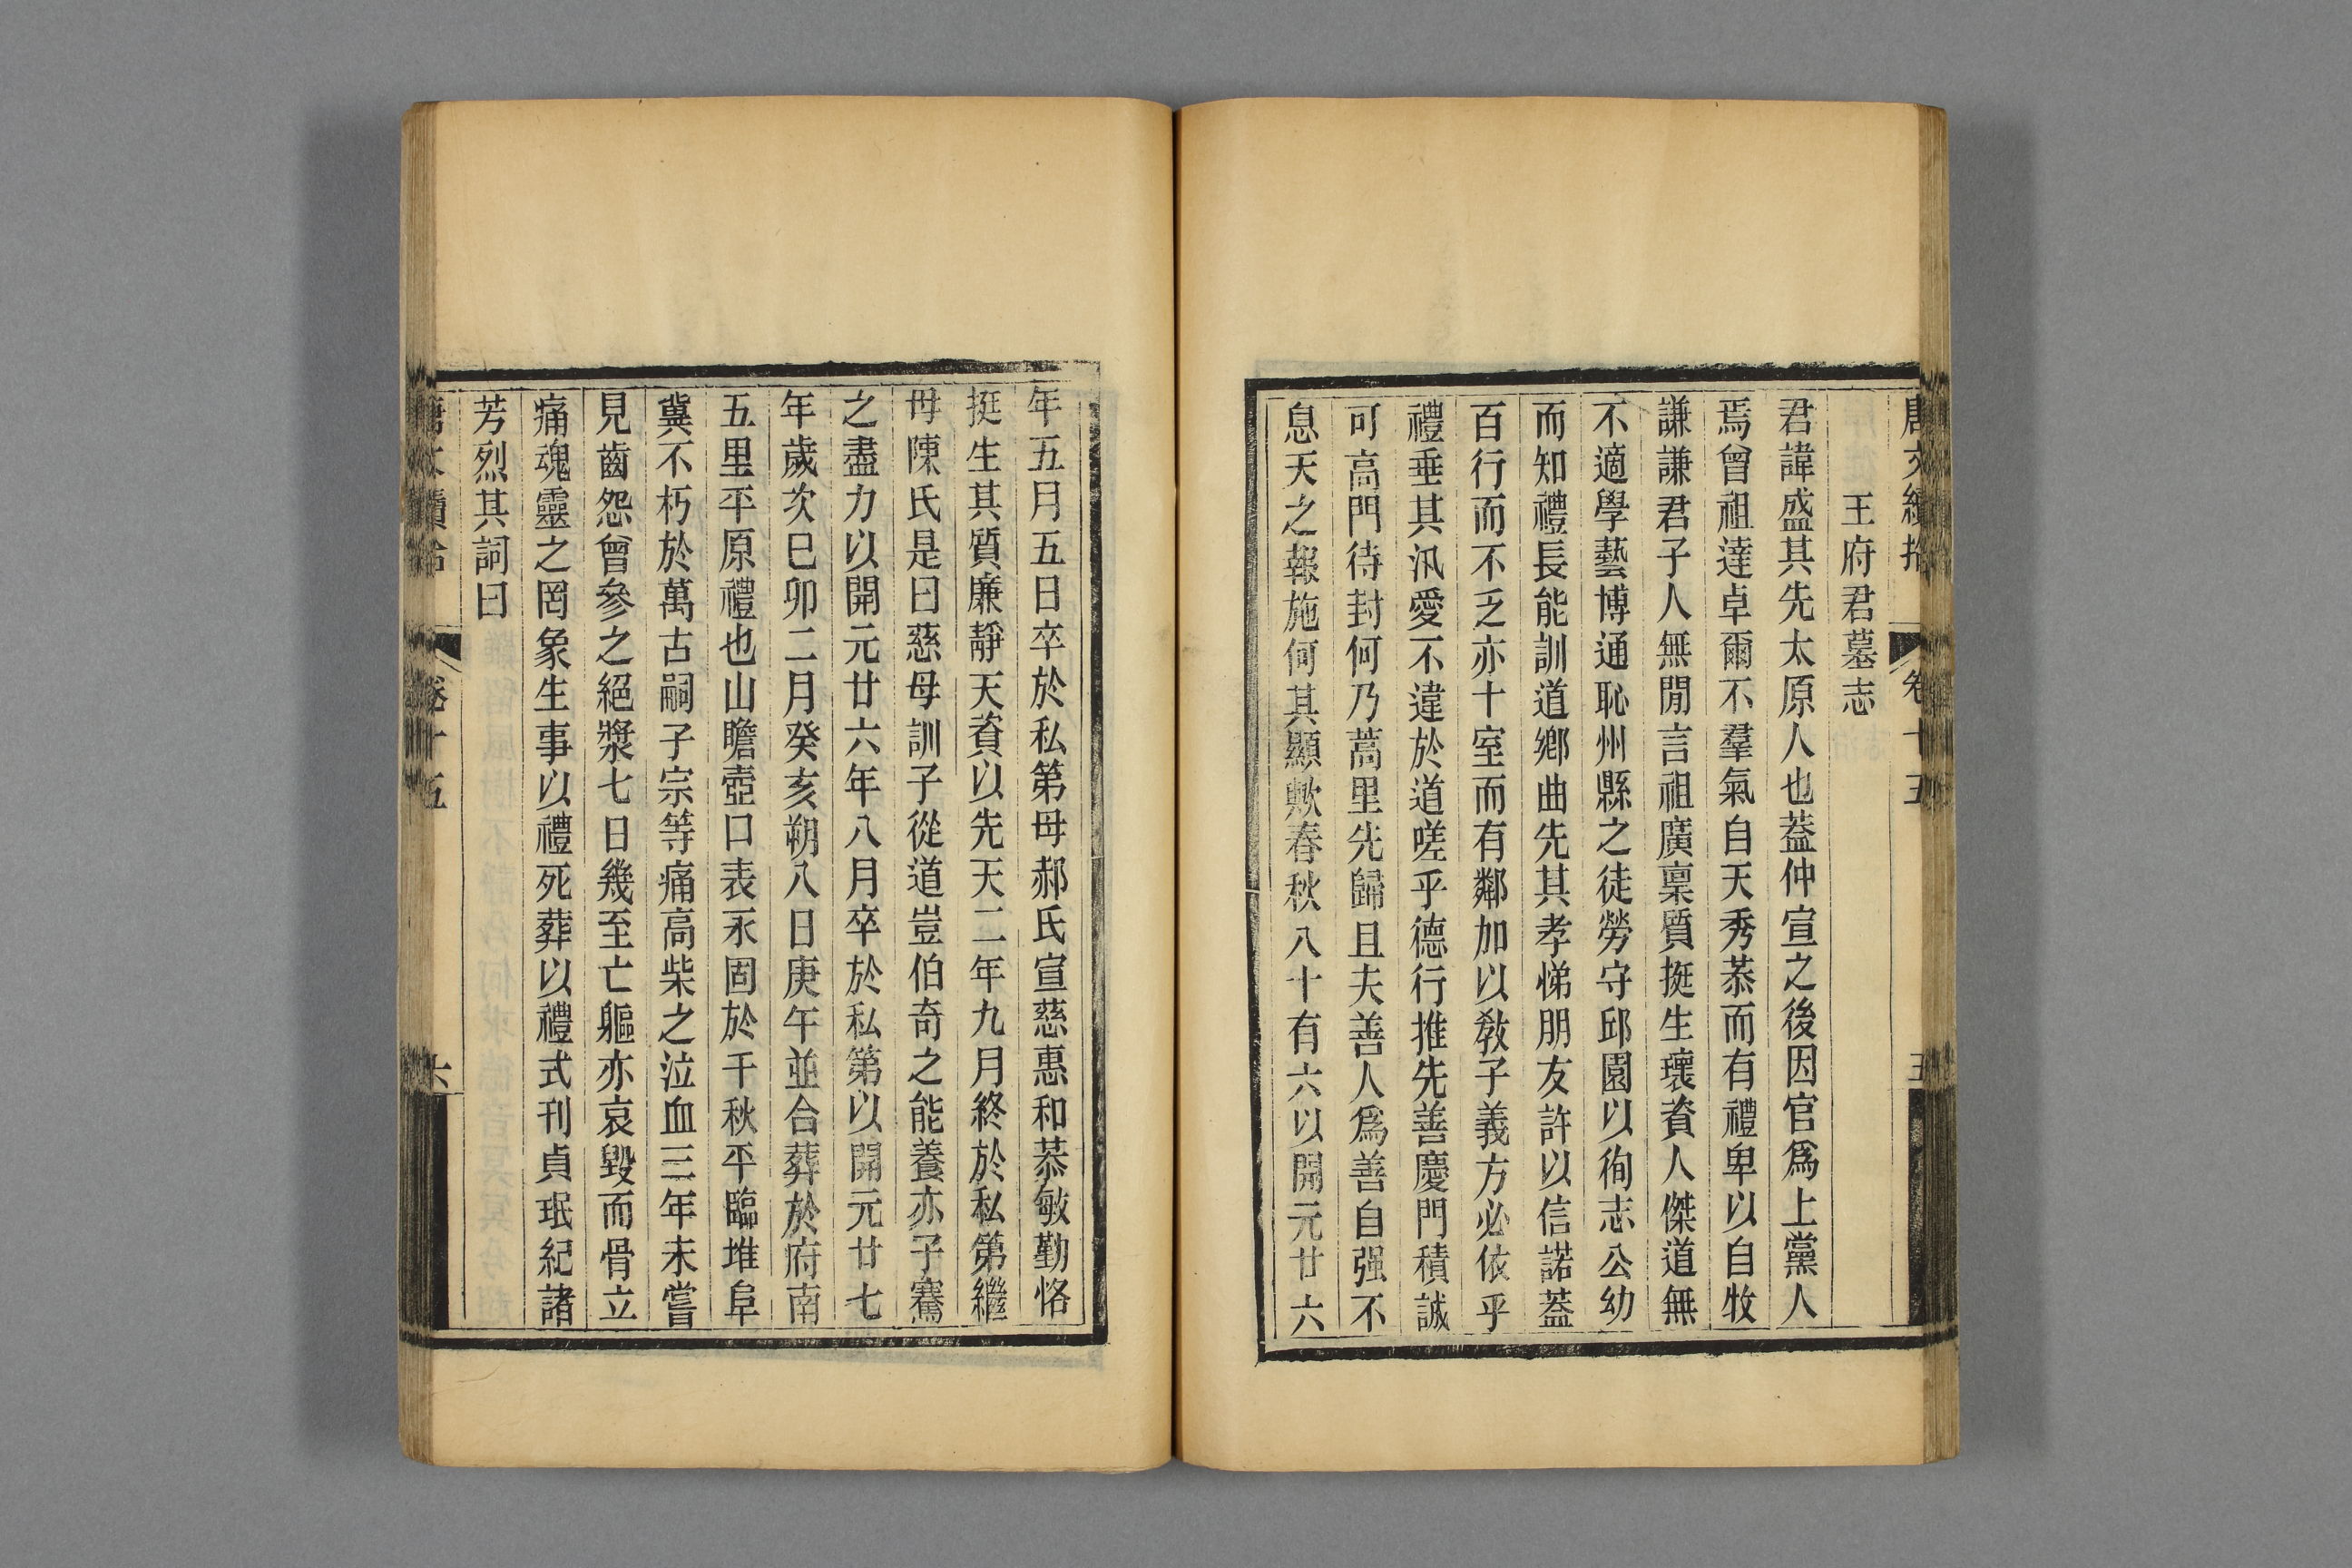 唐文續拾 卷十五 五
王府君墓志
君諱盛其先太原人也蓋仲宣之後因官爲上黨人
焉曾祖達卓爾不羣氣自天秀恭而有禮卑以自牧
謙謙君子人無閒言祖廣稟質挺生瓌資人傑道無
不適學藝博通恥州縣之徒勞守邱園以徇志公幼
而知禮長能訓道鄉曲先其孝悌朋友許以信諾蓋
百行而不乏亦十室而有鄰加以敎子義方必依乎
禮垂其汎愛不違於道嗟乎德行推先善慶門積誠
可高門待封何乃蒿里先歸且夫善人爲善自强不
息天之報施何其顯歟春秋八十有六以開元廿六
年五月五日卒於私第母郝氏宣慈惠和恭敏勤恪
挺生其質廉靜天資以先天二年九月終於私第繼
母陳氏是曰慈母訓子從道豈伯奇之能養亦子騫
之盡力以開元廿六年八月卒於私第以開元廿七
年歲次巳卯二月癸亥朔八日庚午並合葬於府南
五里平原禮也山瞻壺口表永固於千秋平臨堆阜
冀不朽於萬古嗣子宗等痛高柴之泣血三年未嘗
見齒怨曾參之絕漿七日幾至亡軀亦哀毀而骨立
痛魂靈之罔象生事以禮死葬以禮式刊貞珉紀諸
芳烈其詞曰
唐文續拾 卷十五 六